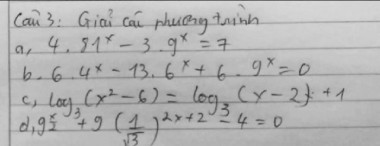 Câu 3: Giải các phương trình
a, 4.81^x - 3.9^x = 7
b. 6.4^x - 13.6^x + 6.9^x = 0
c, log_3 (x² - 6) = log_3 (x - 2) + 1
d, 9^{x/2} + 9 (1/√3)^{2x+2} - 4 = 0